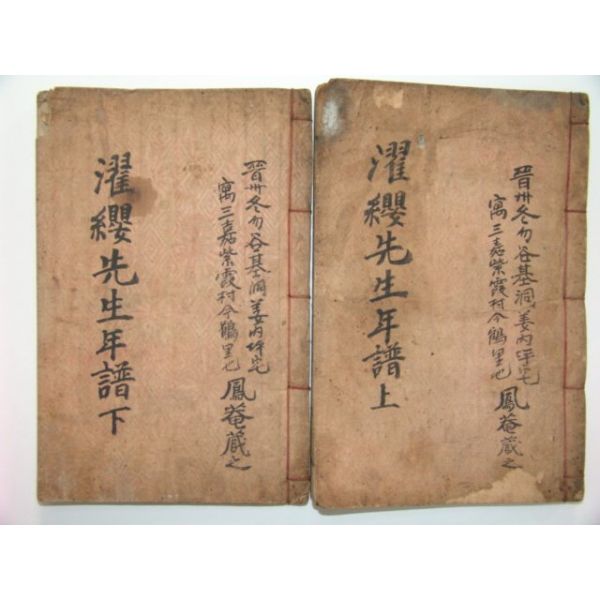 濯纓先生年譜上
晉州冬勿谷基洞姜內坪宅
寓三嘉紫霞村今鶴里也
鳳菴藏之
濯纓先生年譜下
晉州冬勿谷基洞姜內坪宅
寓三嘉紫霞村今鶴里也
鳳菴藏之